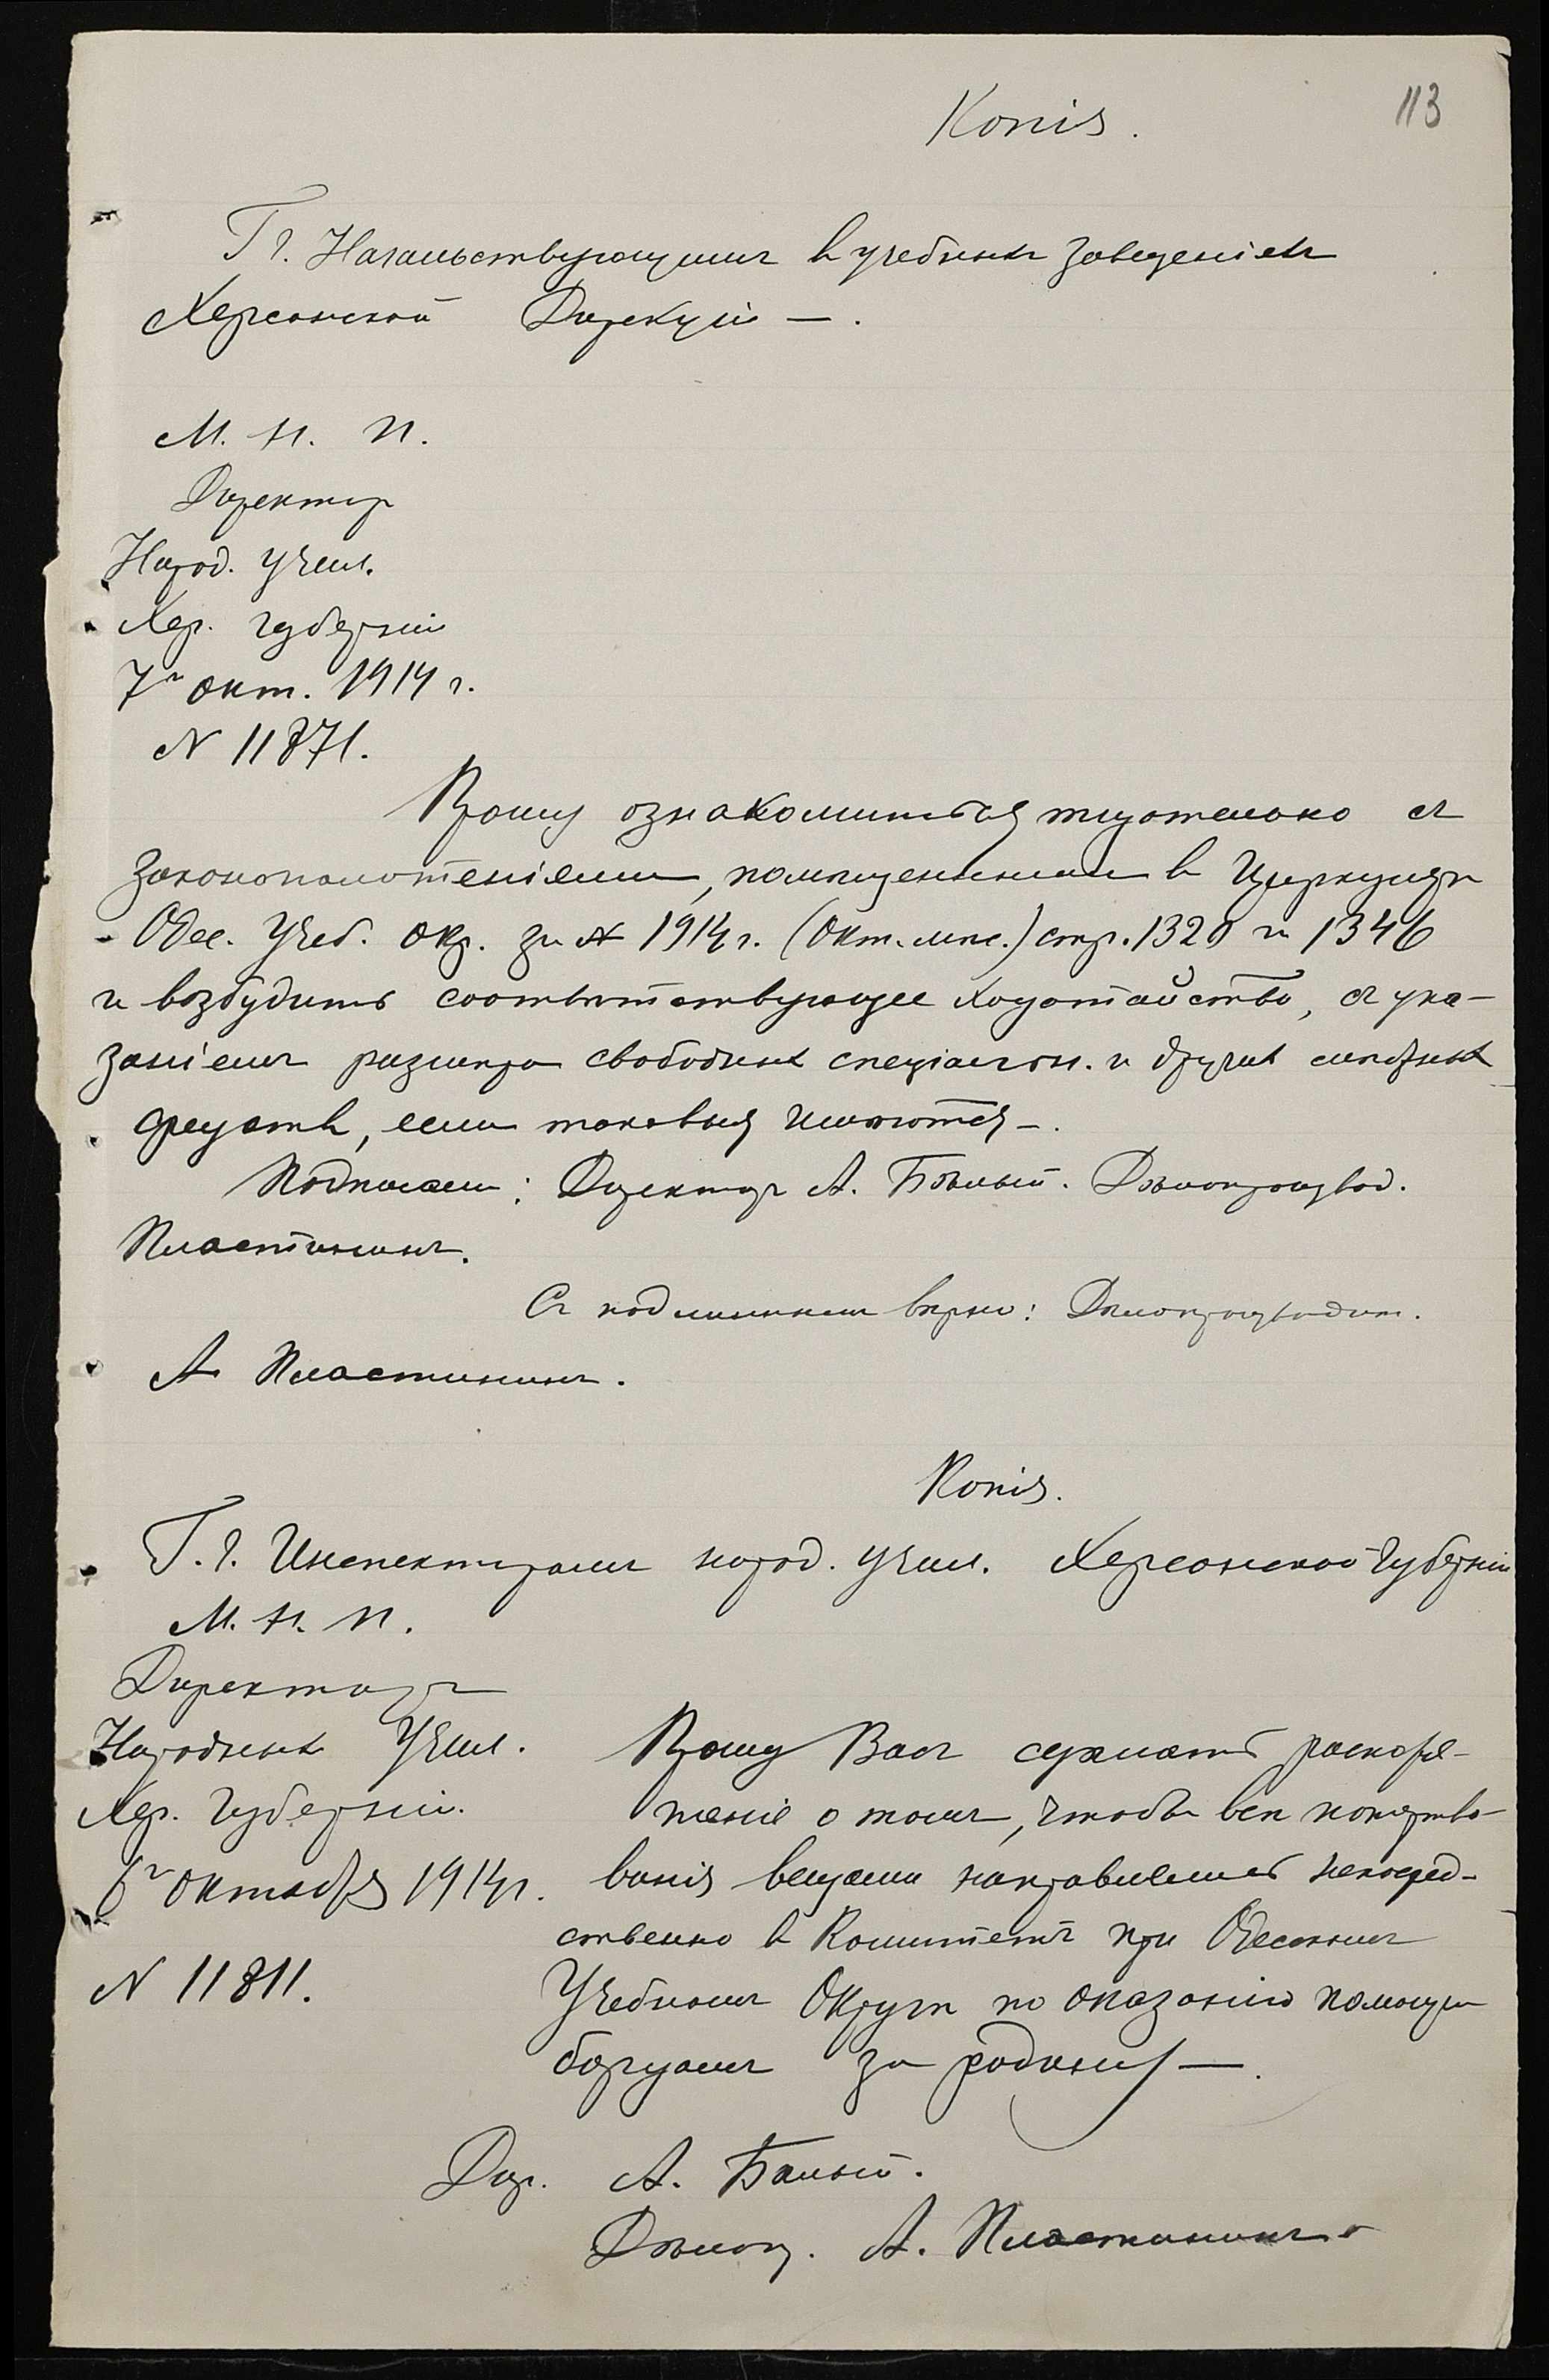 Копія.
113
Гг. Начальствующимъ въ учебныхъ заведеніяхъ
Херсонской Дирекціи —.
М. Н. П.
Директоръ
Народ. Учил.
Хер. Губерніи
7го окт. 1914 г.
N 11871.
Прошу ознакомиться тщательно съ
законоположеніями, помѣщенными въ Циркулярѣ
Одес. Учеб. Окр. за 1914 г. (Окт. мѣс.) стр. 1320 и 1346
и возбудить соотвѣтствующее ходатайство, съ ука-
заніемъ размѣра свободныхъ спеціальн. и другихъ
средствъ, если таковыя имѣются —.
Подписали: Директоръ А. Бѣлый. Дѣлопроизвод.
Пластининъ.
Съ подлиннымъ вѣрно: Дѣлопроизводит.
А Пластининъ.
Копія.
Г.г. Инспекторамъ народ. учил. Херсонской Губерніи
М. Н. П.
Директоръ
Народныхъ Учил.
Хер. Губерніи.
6го Октября 1914 г.
N 11811.
Прошу Васъ сдѣлать распоря-
женіе о томъ, чтобы всѣ пожертво-
ванія вещами направлялись непосред-
ственно въ Комитетъ при Одесскомъ
Учебномъ Округѣ по оказанію помощи
борцамъ за родину —.
Дир. А. Бѣлый.
Дѣлопр. А. Пластининъ